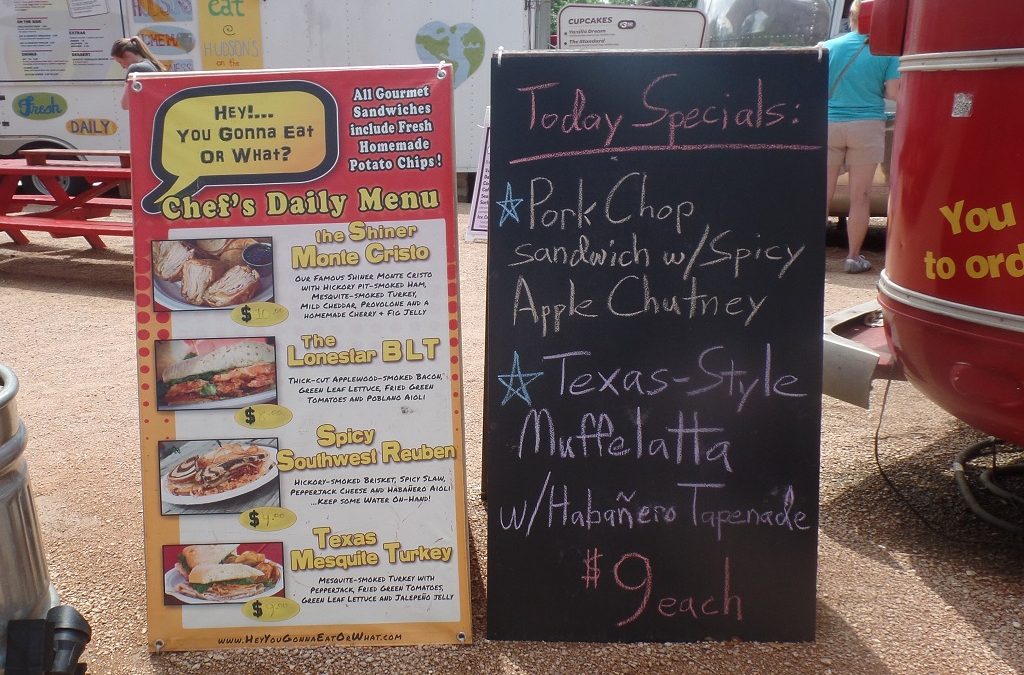 eat
HUDSON'S
on the
Fresh
DAILY
EXTRAS
CUPCAKES
Vanilla Dream
The Standard
HEY!...
YOU GONNA EAT
OR WHAT?
All Gourmet
Sandwiches
include Fresh
Homemade
Potato Chips!
Chef's Daily Menu
the Shiner
Monte Cristo
OUR FAMOUS SHINER MONTE CRISTO
WITH HICKORY PIT-SMOKED HAM,
MESQUITE-SMOKED TURKEY,
MILD CHEDDAR, PROVOLONE AND A
HOMEMADE CHERRY & FIG JELLY
$
The
Lonestar BLT
THICK-CUT APPLEWOOD-SMOKED BACON,
GREEN LEAF LETTUCE, FRIED GREEN
TOMATOES AND POBLANO AIOLI
$
Spicy
Southwest Reuben
HICKORY-SMOKED BRISKET, SPICY SLAW,
PEPPERJACK CHEESE AND HABAÑERO AIOLI
...KEEP SOME WATER ON-HAND!
$
Texas
Mesquite Turkey
MESQUITE-SMOKED TURKEY WITH
PEPPERJACK, FRIED GREEN TOMATOES,
GREEN LEAF LETTUCE AND JALEPEÑO JELLY
$
WWW.HEYYOUGONNAEATORWHAT.COM
Today Specials:
Pork Chop
sandwich w/Spicy
Apple Chutney
Texas-Style
Muffelatta
w/Habañero Tapenade
$9 each
You
to ord